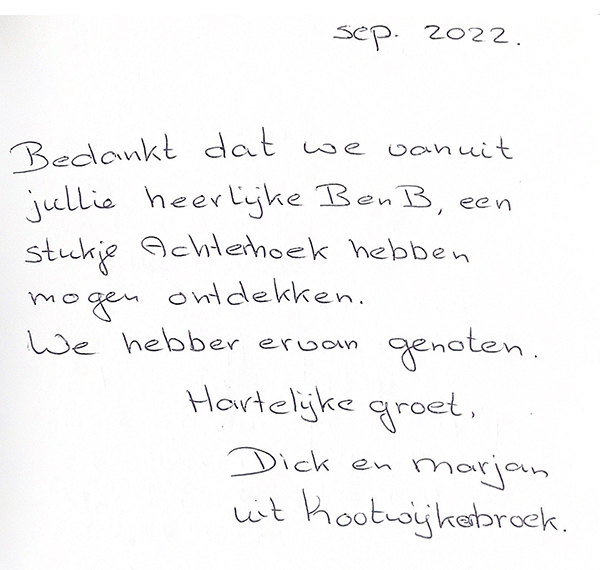 sep. 2022.
Bedankt dat we vanuit
jullie heerlijke BenB, een
stukje Achterhoek hebben
mogen ontdekken.
We hebber ervan genoten.
Hartelijke groet,
Dick en marjan
uit Kootwijkerbroek.